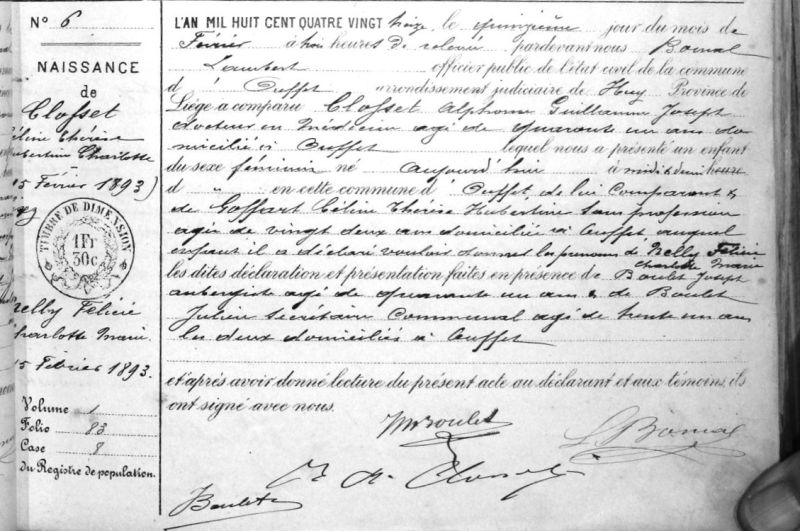 N° 6
NAISSANCE
de
Closset
Céline Thérèse
Hubertine Charlotte
15 Février 1893)
TIMBRE DE DIMENSION
1 Fr
30c
Nelly Félicie
Charlotte Marie
15 Février 1893.
Volume 1
Folio 83
Case 8
du Registre de population.
L'AN MIL HUIT CENT QUATRE VINGT treize, le quinzième jour du mois de
Février à trois heures de relevée pardevant nous Bomal
Lambert officier public de l'état civil de la commune
d' Ouffet arrondissement judiciaire de Huy Province de
Liège a comparu Closset Alphonse Guillaume Joseph
docteur en Médecine agé de quarante un ans do
micilié à Ouffet lequel nous a présenté un enfant
du sexe féminin né aujourd'hui à midi & demi heure
d' " en cette commune d' Ouffet, de lui Comparant &
de Goffart Céline Thérèse Hubertine sans profession
agée de vingt deux ans domiciliée à Ouffet auquel
enfant il a déclaré vouloir donner les prénoms de Nelly Félicie
Charlotte Marie
les dites déclaration et présentation faites en présence de Boulet Joseph
aubergiste agé de quarante un ans & de Boulet
Julien Secrétaire Communal agé de trente un ans
les deux domiciliés à Ouffet
et après avoir donné lecture du présent acte au déclarant et aux témoins, ils
ont signé avec nous.
Boulet
L. Bomal
A. Closset
Boulet